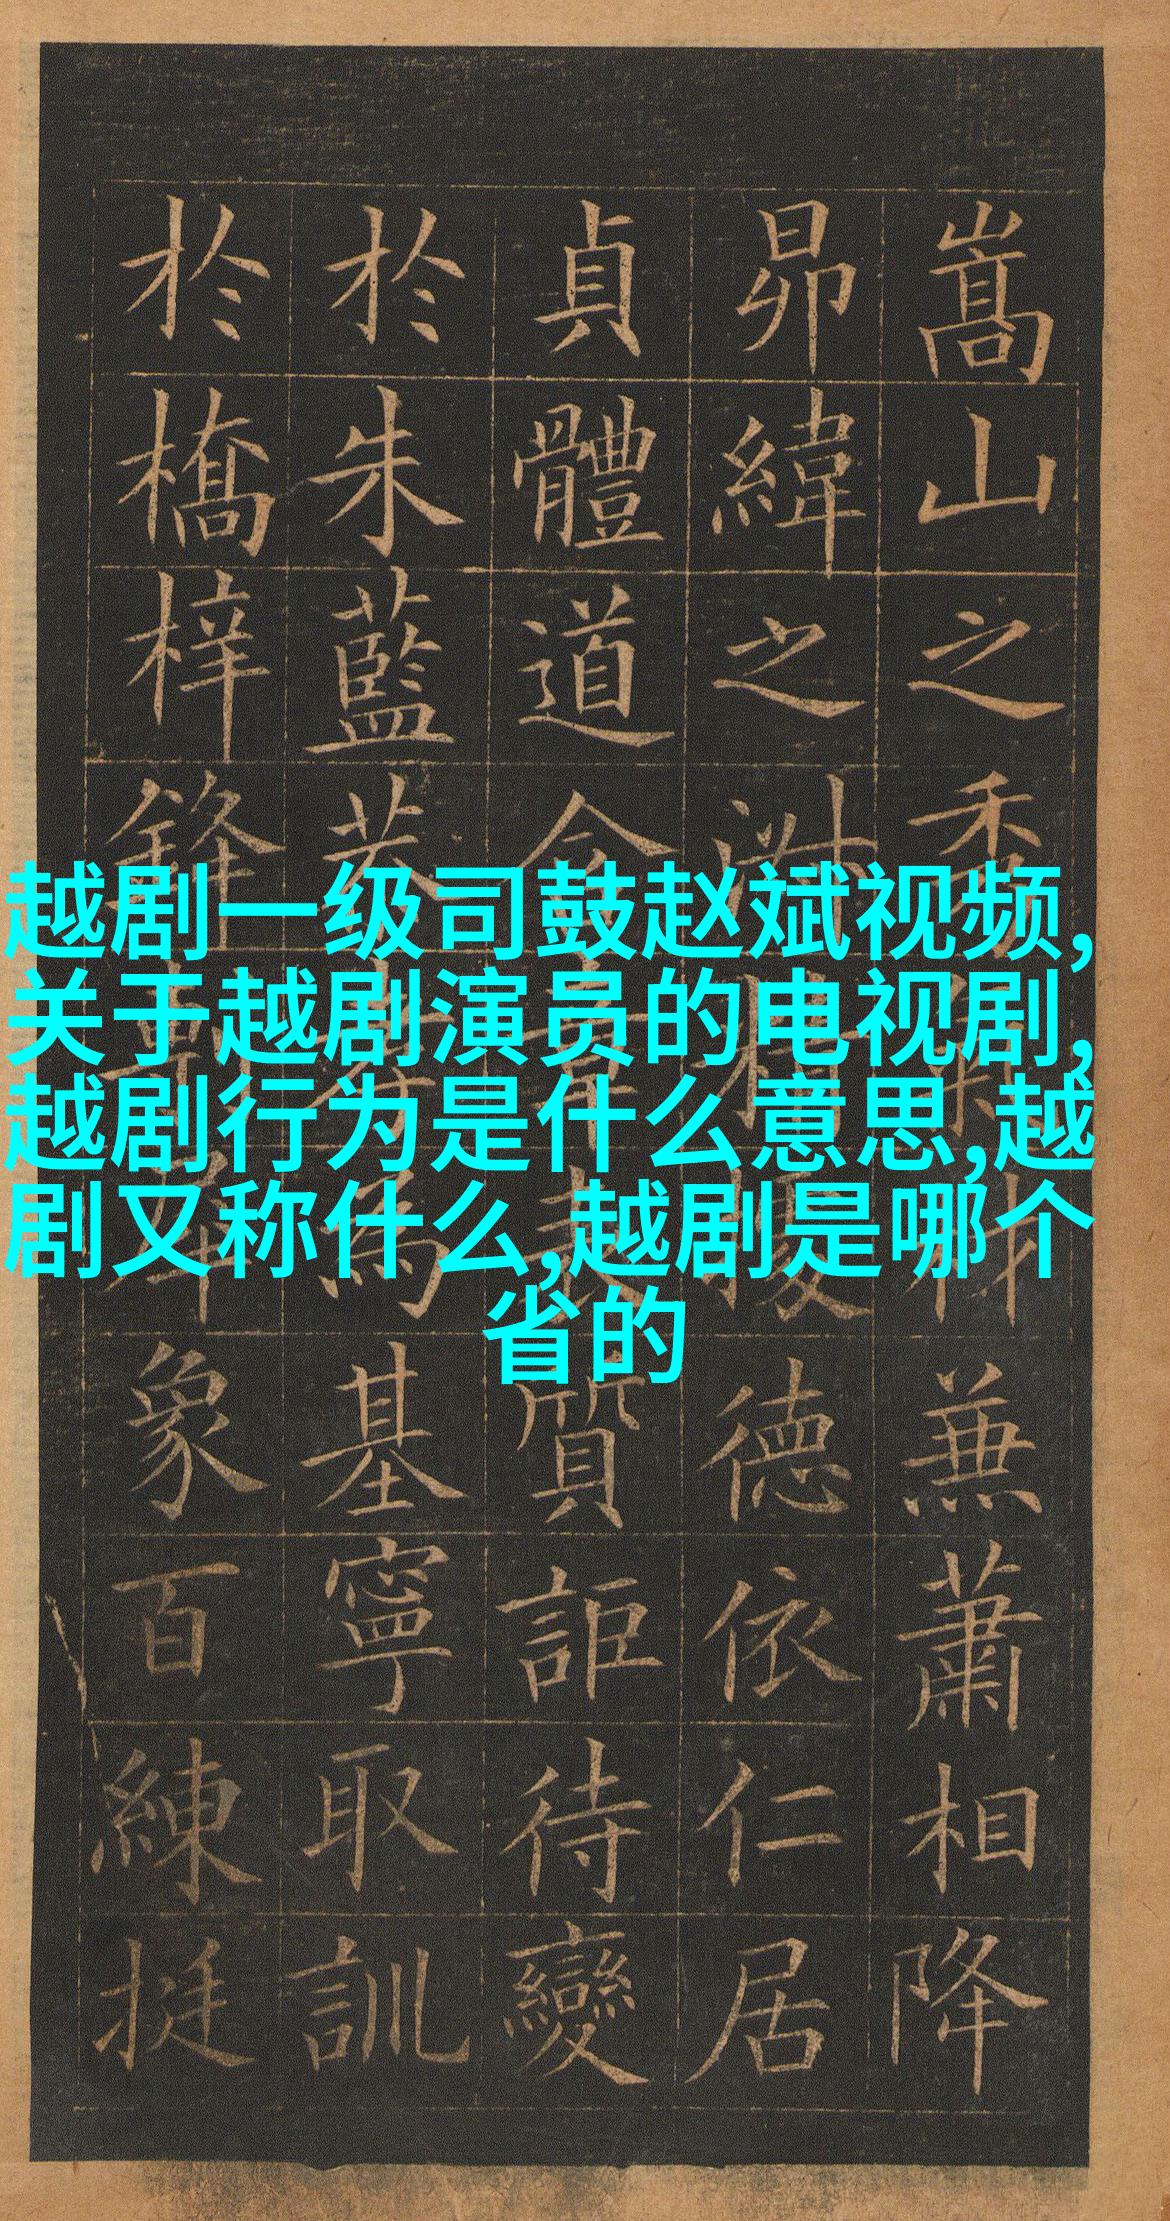 越剧一级司鼓赵斌视频,
关于越剧演员的电视剧,
越剧行为是什么意思,越
剧又称什么,越剧是哪个
省的
嵩山之秀兼蕭相降
昴緯之精德依仁居
貞體道含章表質詎待變
於朱藍爲基寧取訓
於橋梓鋒象百練挺